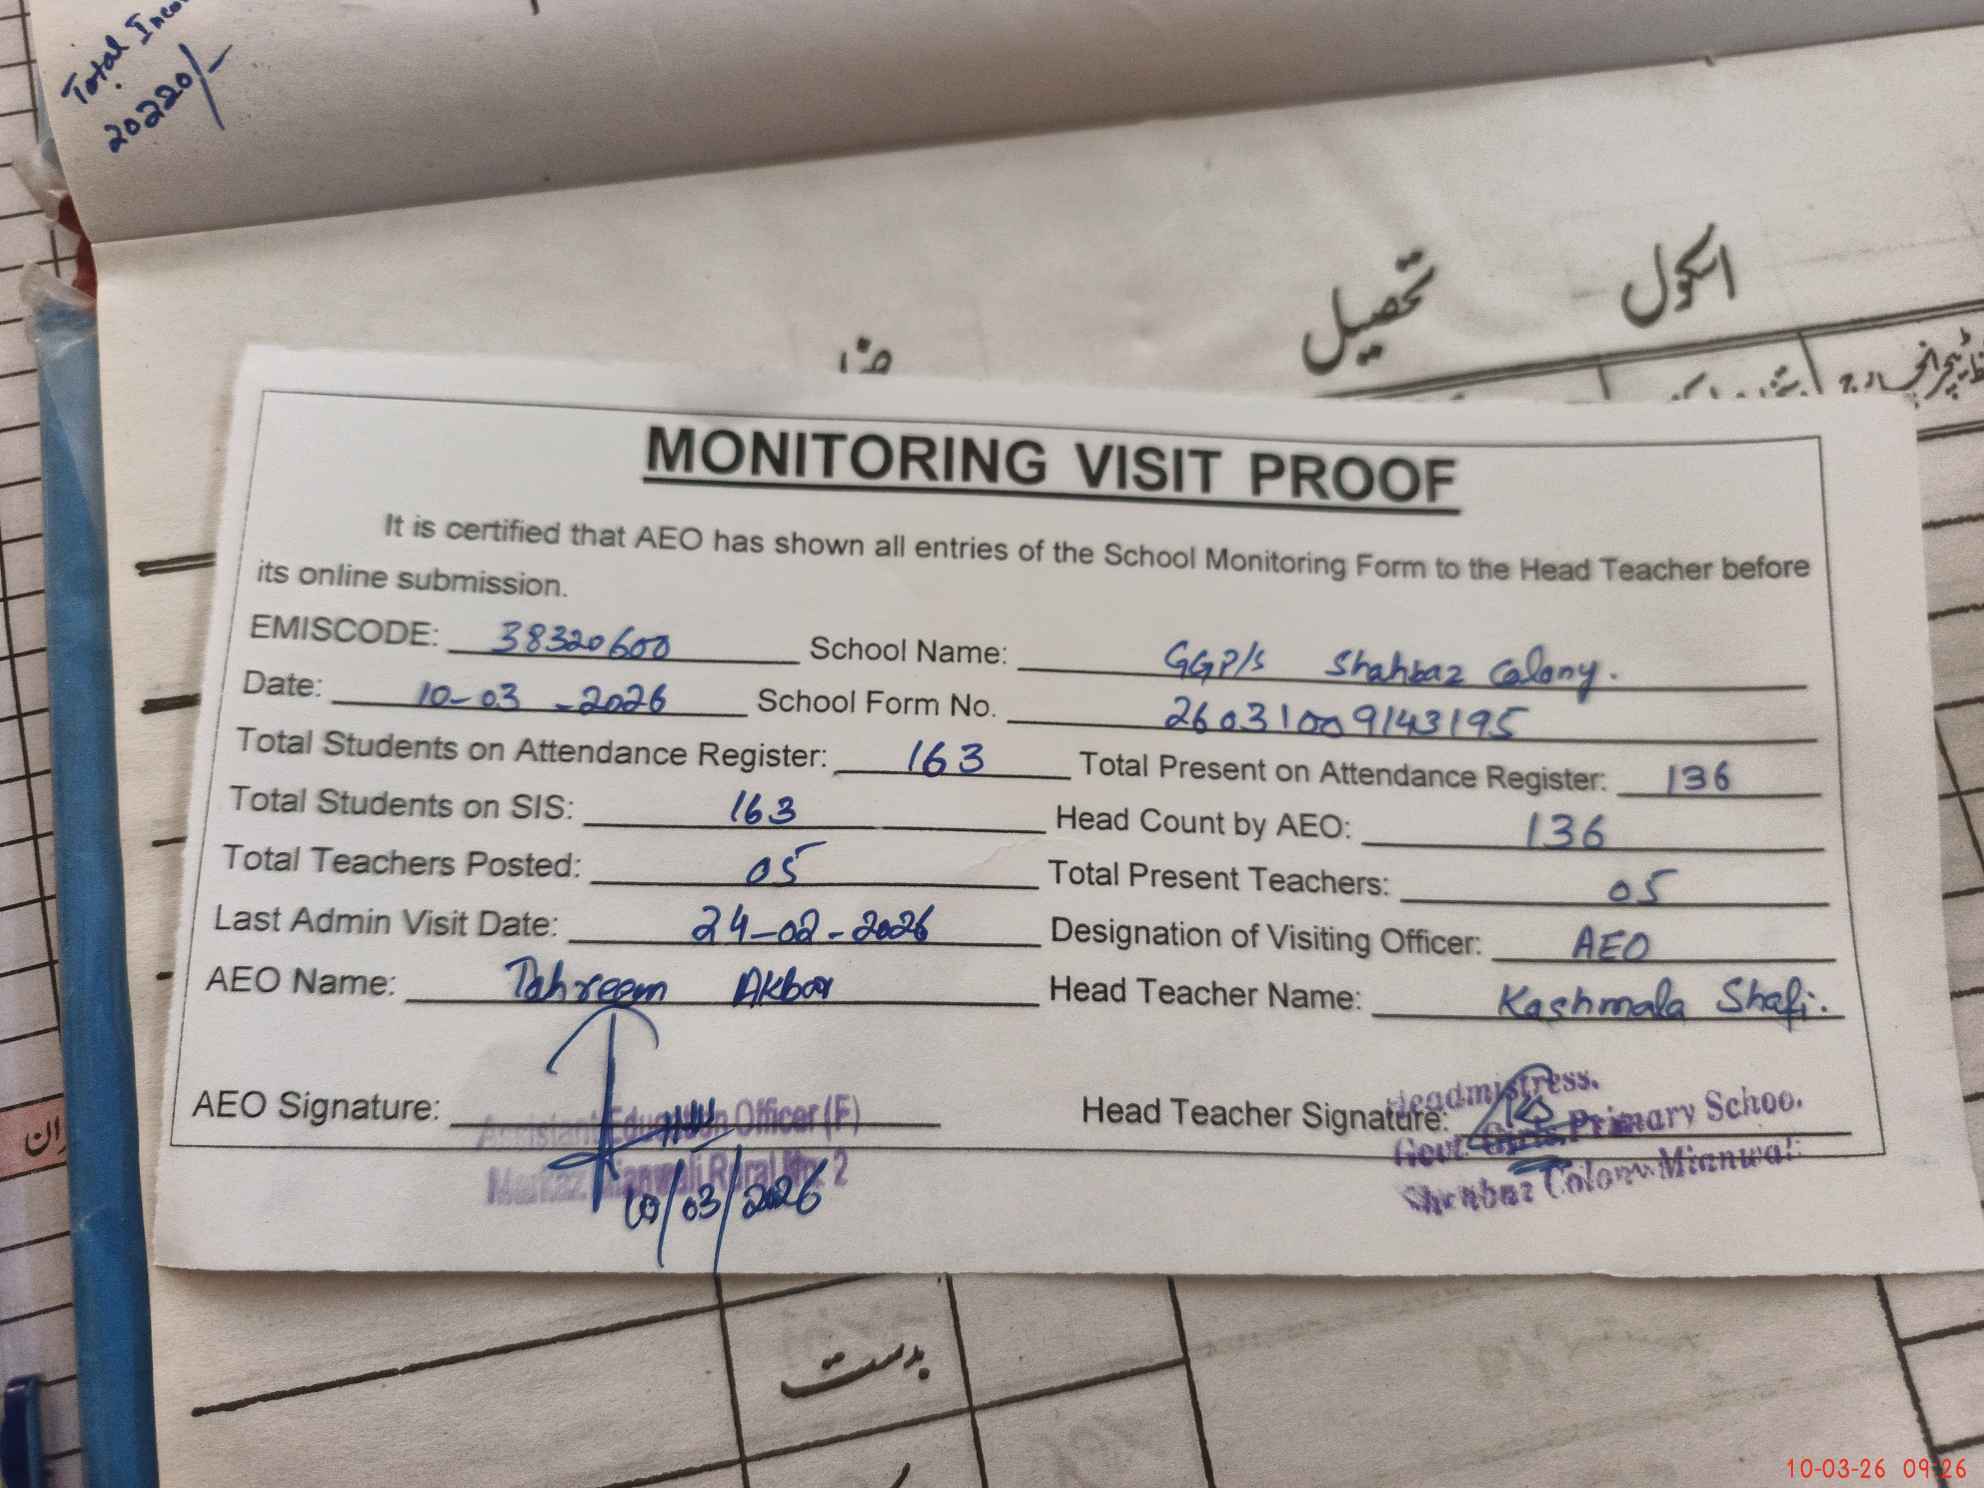 Total Inco
20220/-
اسکول تحصیل ض
MONITORING VISIT PROOF
It is certified that AEO has shown all entries of the School Monitoring Form to the Head Teacher before
its online submission.
EMISCODE: 38320600 School Name: GGP/S Shahbaz Colony.
Date: 10-03-2026 School Form No. 26031009143195
Total Students on Attendance Register: 163 Total Present on Attendance Register: 136
Total Students on SIS: 163 Head Count by AEO: 136
Total Teachers Posted: 05 Total Present Teachers: 05
Last Admin Visit Date: 24-02-2026 Designation of Visiting Officer: AEO
AEO Name: Tahreem Akbar Head Teacher Name: Kashmala Shafi.
AEO Signature: Head Teacher Signature:
Assistant Education Officer (F)
Markaz Mianwali Rural No: 2
10/03/2026
Headmistress.
Govt. Girls Primary Schoo.
Shahbaz Colony Mianwali
بدست
10-03-26 09:26